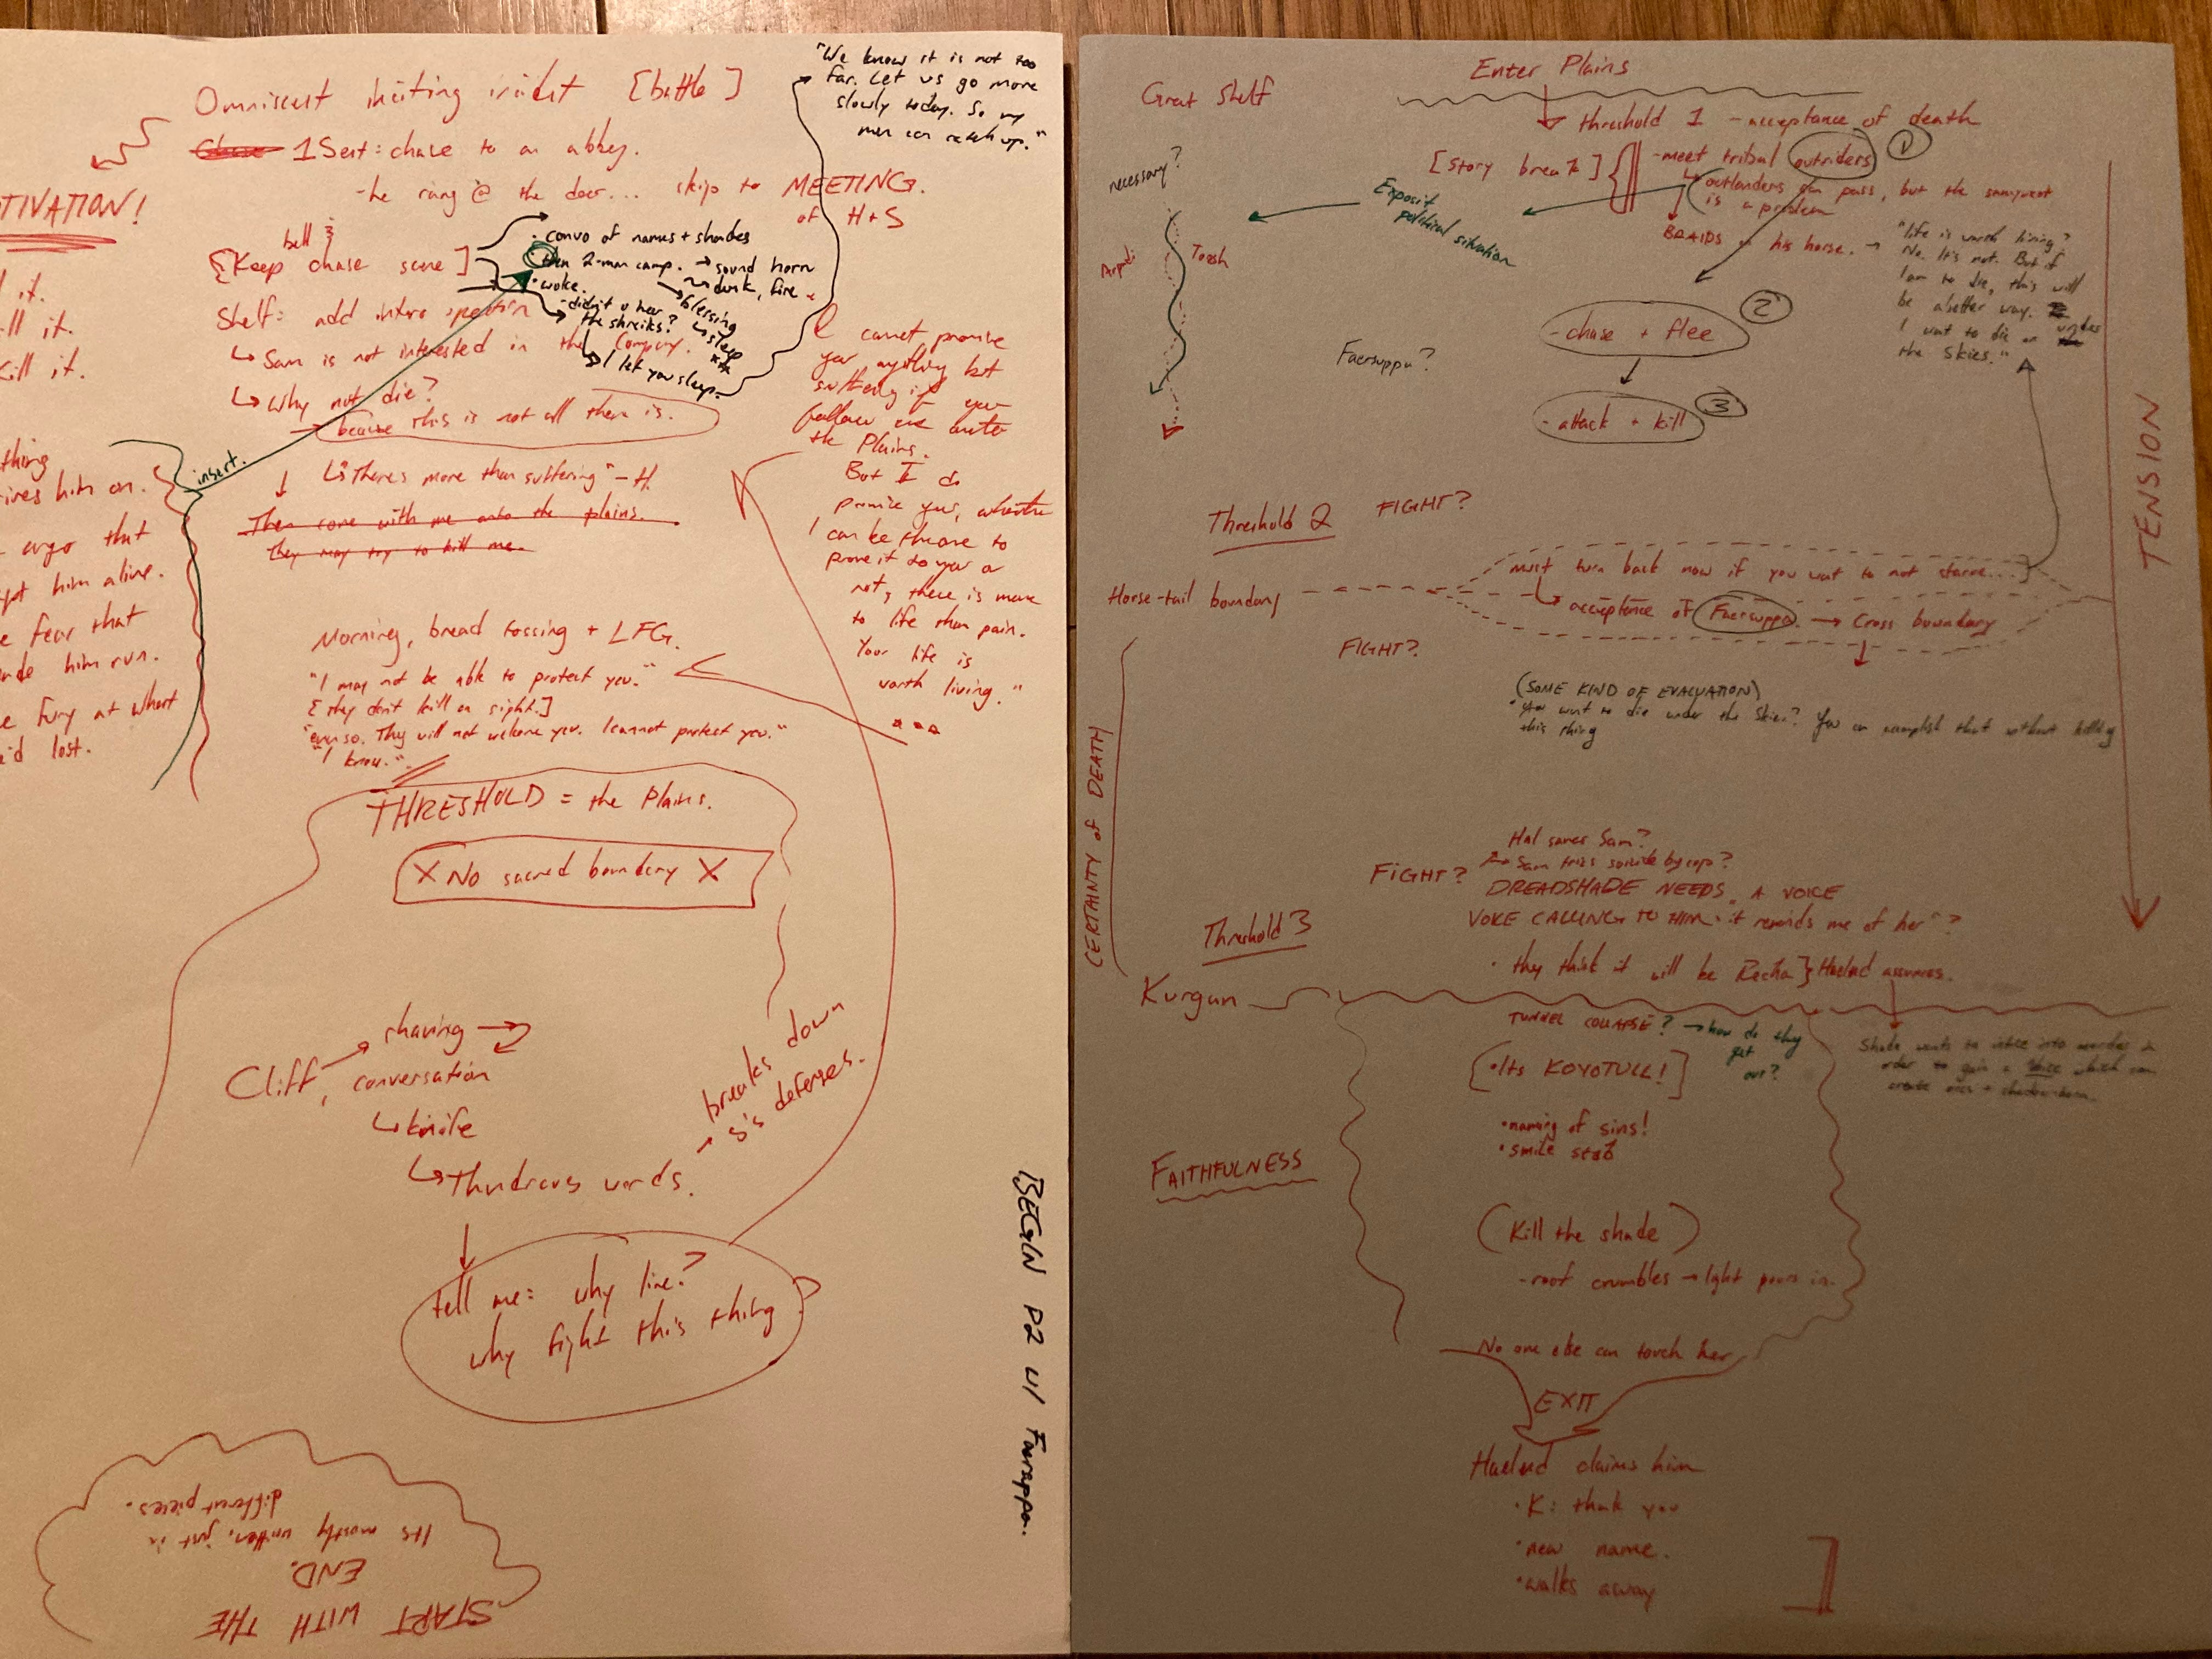 Omniscient inciting incident [battle]
1 Sent: chase to an abbey.
-he rang @ the door... skip to MEETING
of H+S
"We know it is not too
far. Let us go more
slowly today. So my
men can catch up."
TIVATION!
bell
{Keep chase scene]
• convo of names + shades
then 2-man camp. → sound horn
dusk, fire
• woke.
blessing
- didn't u hear
the shrieks?
sleep
I let you sleep.
Shelf: add introspection
↳ Sam is not interested in the Company.
↳ Why not die?
→ because this is not all there is.
↳ "There's more than suffering" - H.
Then come with me onto the plains.
They may try to kill me.
insert.
it.
ill it.
Kill it.
thing
ives him on.
ergo that
ept him alive.
e fear that
ade him run.
e fury at what
i'd lost.
I cannot promise
you anything but
suffering if you
follow me onto
the Plains.
But I do
promise you, whether
I can be there to
prove it to you or
not, there is more
to life than pain.
Your life is
worth living."
Morning, bread tossing + LFG.
"I may not be able to protect you."
[they don't kill on sight.]
"even so. They will not welcome you. I cannot protect you."
"I know."
THRESHOLD = the Plains.
X No sacred boundary X
Cliff,
shaving
conversation
↳ knife
↳ Thundrous words.
→ breaks down
S's defenses.
tell me: why live?
why fight this thing
BEGIN P2 w/ Faersuppa.
START WITH THE
END.
Its mostly written, just in
different pieces.
Great Shelf
Enter Plains
threshold 1 - acceptance of death
[story break]
- meet tribal outriders 1
↳ outlanders can pass, but the
is a problem
BRAIDS his horse. →
necessary?
Exposit
political situation
Toesh
"life is worth living?
No. It's not. But if
I am to die, this will
be a better way.
I want to die under
the skies."
- chase + flee 2
Faersuppa?
- attack + kill 3
TENSION
Threshold 2
FIGHT?
must turn back now if you want to not starve...]
Horse-tail boundary
acceptance of Faersuppa. → Cross boundary
FIGHT?
(SOME KIND OF EVALUATION)
• you want to die under the skies? You can accomplish that without killing
this thing
CERTAINTY of DEATH
Hal saves Sam?
FIGHT?
Sam tries suicide by cop?
DREADSHADE NEEDS A VOICE
VOICE CALLING TO HIM. "it reminds me of her"?
Threshold 3
• they think it will be Recha} Haelud assumes.
Kurgan
TUNNEL COLLAPSE? → how do they
get
out?
[• Its KOYOTULL!]
Shade wants to entice into murder in
order to gain a Voice which can
create orcs +
• naming of sins!
• smile stab
FAITHFULNESS
(Kill the shade)
- roof crumbles → light pours in.
No one else can touch her
EXIT
Haelud claims him
• K: thank you
• new name.
• walks away